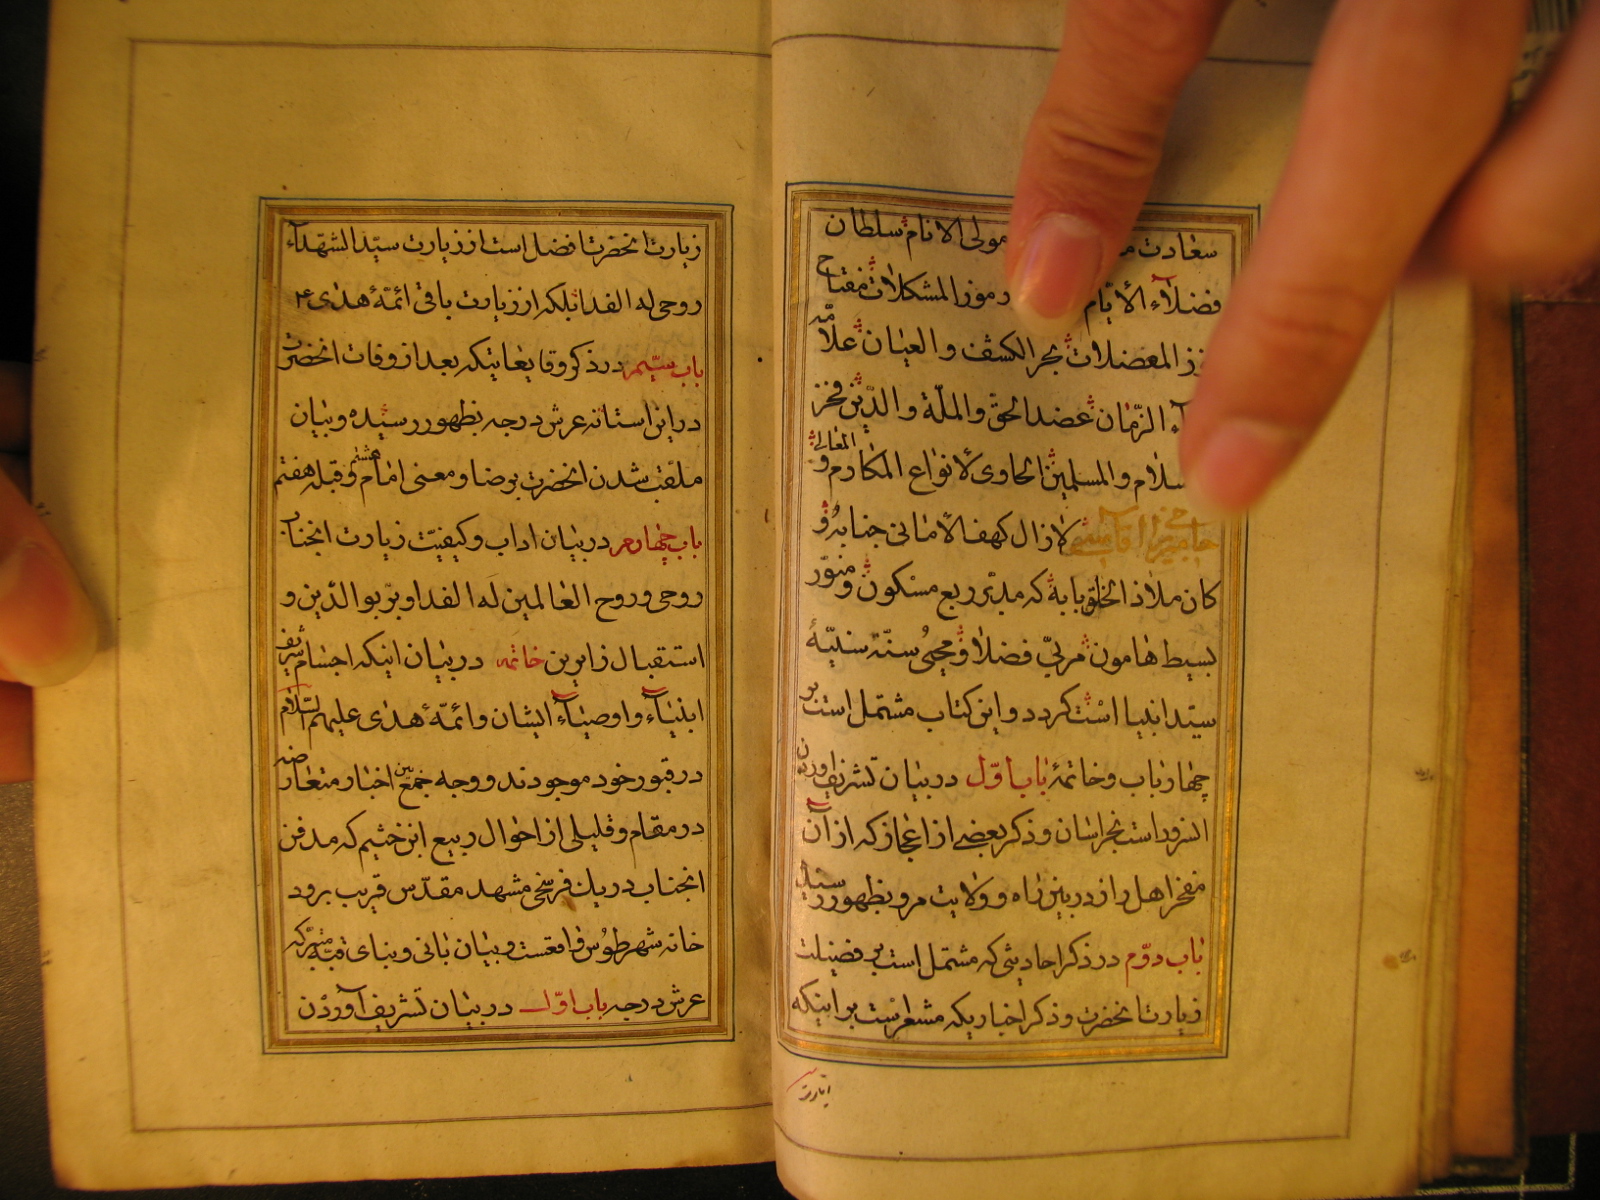 سعادت مولی الانام سلطان
فضلاء الأیّام رموز المشکلات مفتاح
المعضلات بحر الکشف والعیان علّامه
الزّمان عضد الحق والملّة والدّین فخر
والمسلمین الحاوی لانواع المکارم والمعالی
لازال کهفا لامانی جنابهُ و
کان ملاذ الخلق بابهُ که مدبّر ربع مسکون و منوّر
بسیط هامون مربّی فضلا و محییُ سنّة سنیّهٔ
سیّد انبیا است کردد واین کتاب مشتمل است بر
چهار باب وخاتمهٔ باب اوّل در بیان تشریف اوردن
انسرور است بخراسان وذکر بعضی از اعجاز که از آن
مفخر اهل راز در بین راه و ولایت مرو بظهور رسید
باب دوّم در ذکر احادیثی که مشتمل است بر فضیلت
زیارت انحضرت وذکر اخباریکه مشعر است بر اینکه
زیارت
زیارت انحضرت افضل است از زیارت سیّد الشهّدآء
روحی له الفدا بلکه از زیارت باقی ائمّهٔ هدی ع
باب سیّم در ذکر وقایعاتیکه بعد از وفات انحضرت
در این استانه عرش درجه بظهور رسیده وبیان
ملقّب شدن انحضرت برضا ومعنی امام هشتم وقبله هفتم
باب چهارم در بیان اداب وکیفیّت زیارت انجناب
روحی وروح العالمین لَه الفدا وبرّ بوالدین و
استقبال زایرین خاتمه در بیان اینکه اجسام شریف
انبیآء واوصیآء ایشان وائمّهٔ هدی علیهم السّلام
در قبور خود موجودند ووجه جمع بین اخبار متعارضه
در مقام وقلیلی از احوال ربیع ابن خثیم که مدفن
انجناب در یک فرسخی مشهد مقدّس قریب برود
خانه شهر طوس واقعست وبیان بانی وبنای قبّه متبرّکه
عرش درجه باب اوّل در بیان تشریف آوردن